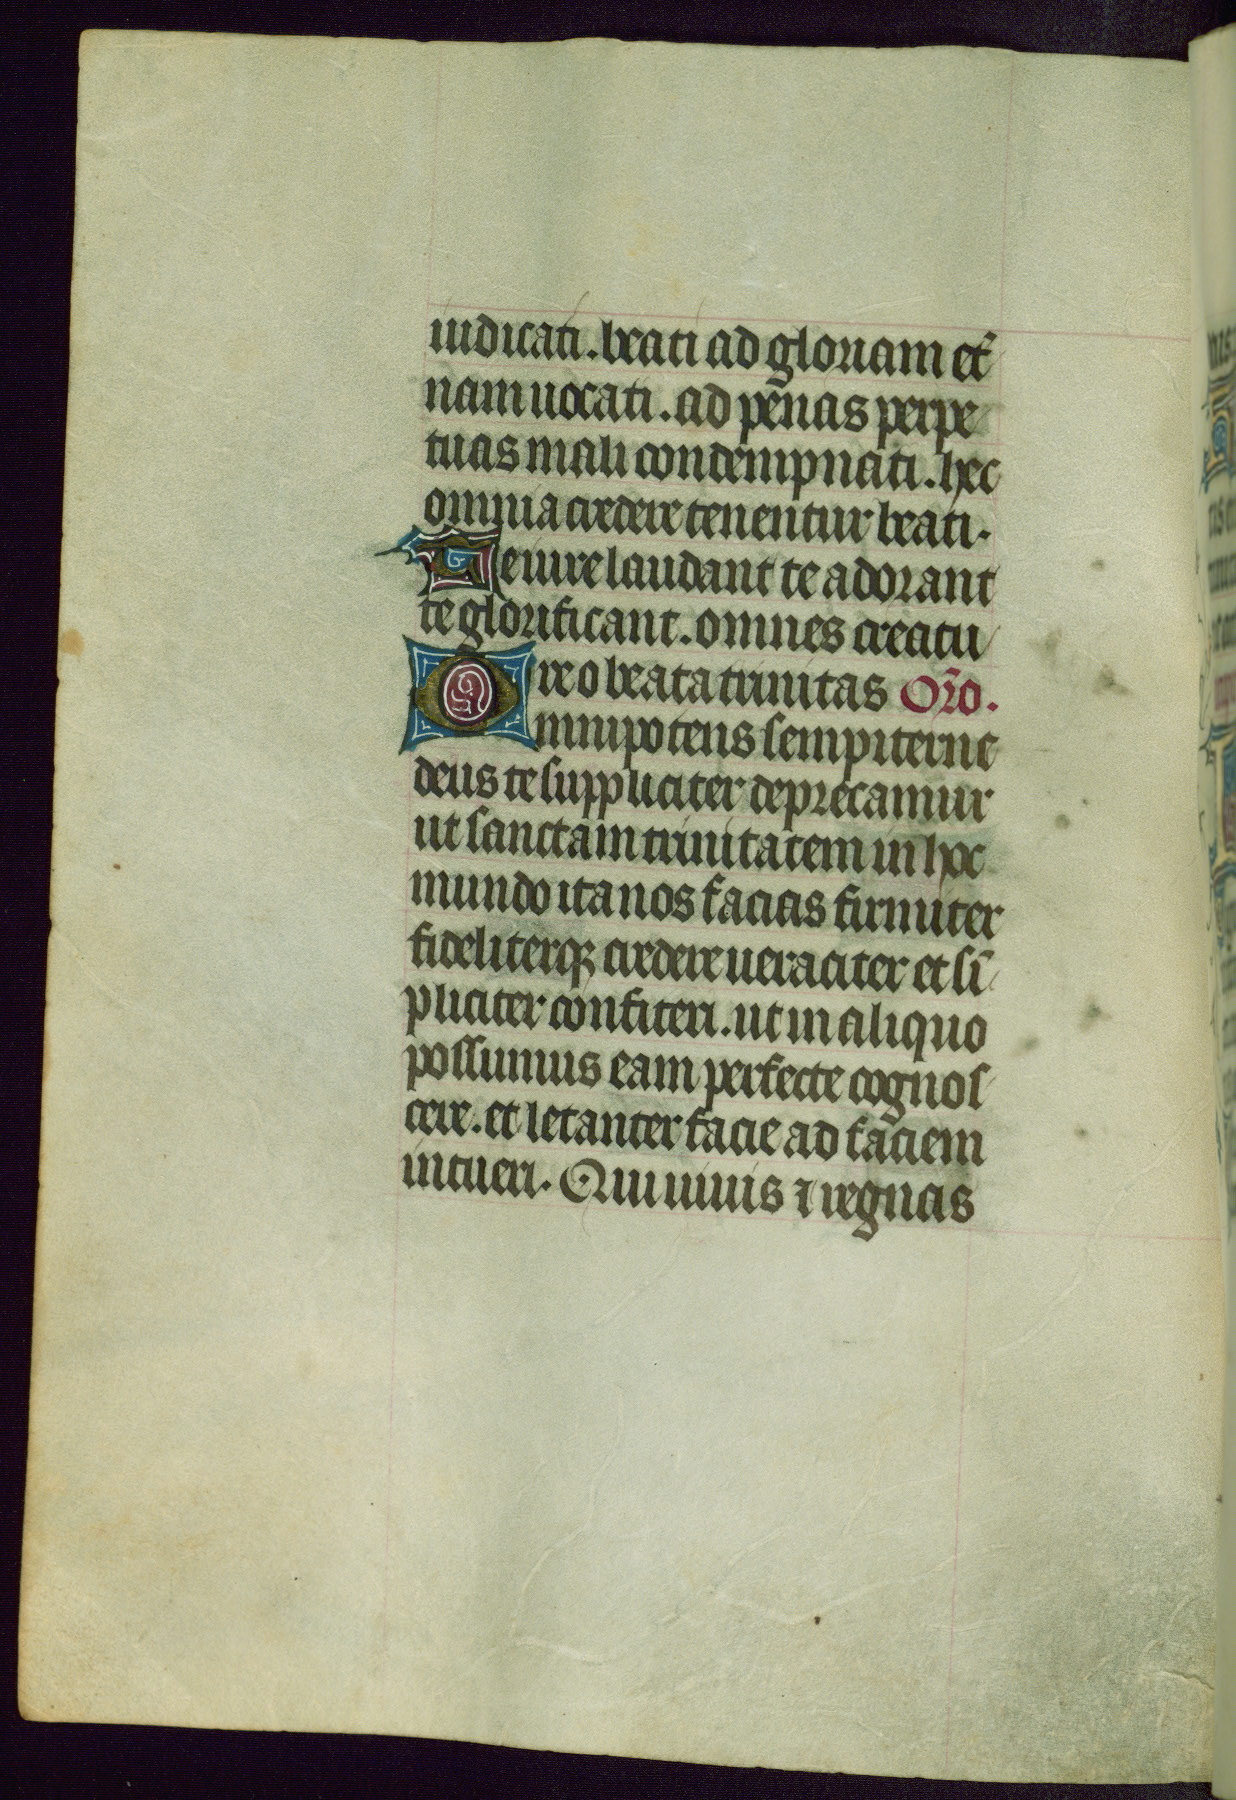 iudicati. beati ad gloriam et̄
nam uocati. ad penas perpe
tuas mali condempnati. hec
omnia credere tenentur beati.
Te iure laudant te adorant
te glorificant. omnes creatu
re o beata trinitas Or̄o.
Omnipotens sempiterne
deus te suppliciter deprecamur
ut sanctam trinitatem in hoc
mundo ita nos facias firmiter
fideliterqꝫ credere ueraciter et si̅
pliciter confiteri. ut in aliquo
possumus eam perfecte cognos
cere. et letanter facie ad faciem
intueri. Qui uiuis ⁊ regnas